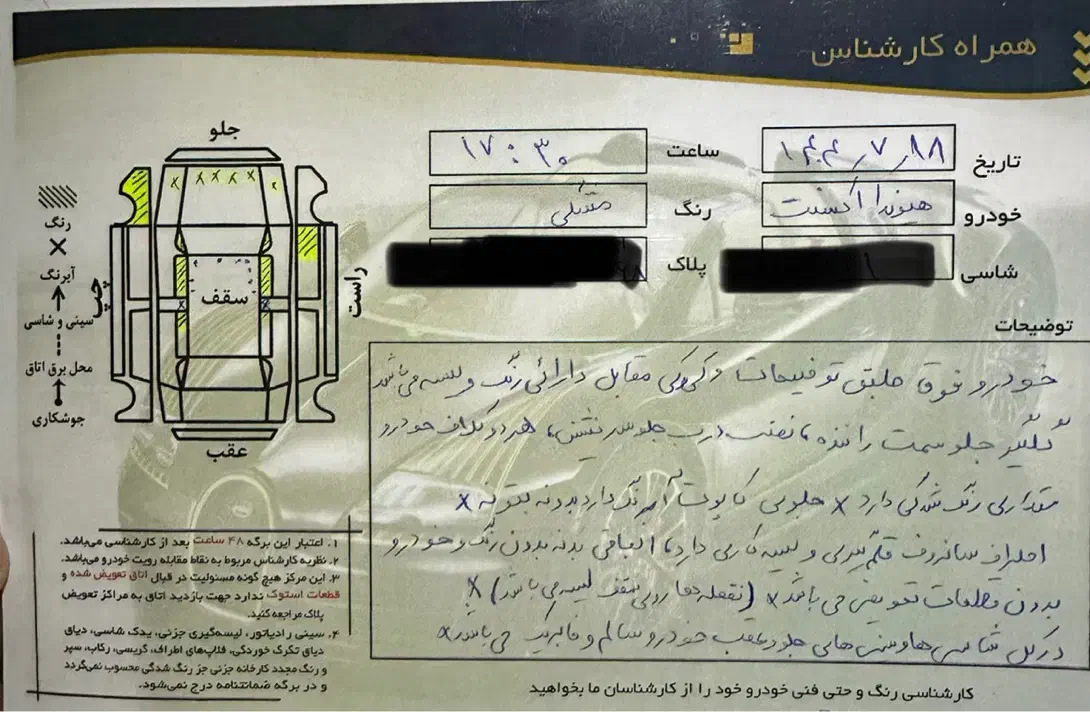 همراه کارشناس
تاریخ ۱۴۰۴٫۷٫۱۸
ساعت ۱۷:۳۰
خودرو هیوندا اکسنت
رنگ مشکی
شاسی
پلاک
جلو
رنگ
آبرنگ
سینی و شاسی
محل برق اتاق
جوشکاری
چپ
راست
سقف
عقب
توضیحات
خودرو فوق طبق توضیحات و کروکی مقابل دارائی رنگ و لیسه می‌باشد
گلگیر جلو سمت راننده، نصف درب جلو سرنشین، هر دو خودرو
مقداری رنگ شدگی دارد × جلویی کاپوت آبرنگ دارد بدونه بتونه ×
اطراف سانروف قلم‌گیری و لیسه کاری دارد، الباقی بدنه بدون رنگ و خودرو
بدون قطعات تعویض می باشد × (نقطه‌ها روی سقف لیسه می باشد) ×
درکل شاسی ها و سینی های جلو عقب خودرو سالم و فابریک می باشد ×
۱. اعتبار این برگه ۴۸ ساعت بعد از کارشناسی می‌باشد.
۲. نظریه کارشناس مربوط به نقاط مقابله رویت خودرو می‌باشد.
۳. این مرکز هیچ گونه مسئولیت در قبال اتاق تعویض شده و
قطعات استوک ندارد جهت بازدید اتاق به مراکز تعویض
پلاک مراجعه کنید.
۴. سینی رادیاتور، لیسه‌گیری جزئی، یدک شاسی، دیاق
دیاق تگرگ خوردگی، قلاب‌های اطراف، گریسی، رکاب، سپر
و رنگ مجدد کارخانه جزئی جز رنگ شدگی محسوب نمی‌گردد
و در برگه ضمانتنامه درج نمی‌شود.
کارشناسی رنگ و حتی فنی خودرو خود را از کارشناسان ما بخواهید